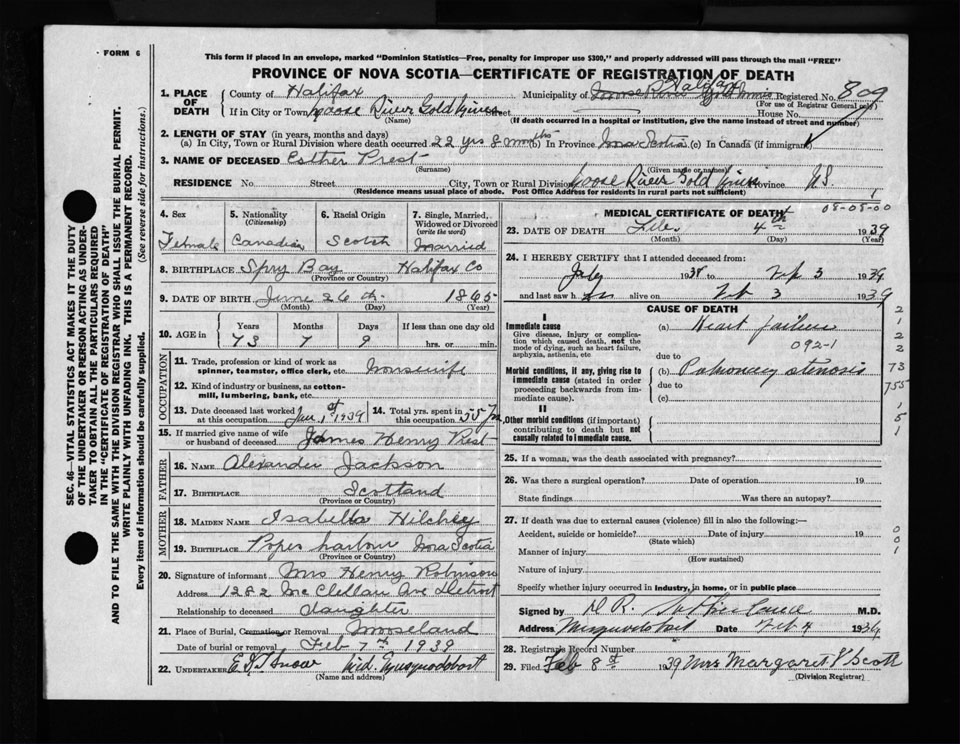 FORM 6
This form if placed in an envelope, marked "Dominion Statistics—Free, penalty for improper use $300," and properly addressed will pass through the mail "FREE"
PROVINCE OF NOVA SCOTIA—CERTIFICATE OF REGISTRATION OF DEATH
1. PLACE OF DEATH County of Halifax Municipality of Halifax Registered No. 809
(For use of Registrar General only)
If in City or Town Goose River Gold Mines Street House No.
(Name) (If death occurred in a hospital or institution, give the name instead of street and number)
2. LENGTH OF STAY (in years, months and days)
(a) In City, Town or Rural Division where death occurred 22 yrs 8 mnths (b) In Province Nova Scotia (c) In Canada (if immigrant)
3. NAME OF DECEASED Esther Prest
(Surname) (Given name or names)
RESIDENCE No. Street City, Town or Rural Division Goose River Gold Mines Province N.S.
(Residence means usual place of abode. Post Office Address for residents in rural parts not sufficient)
4. Sex Female
5. Nationality (Citizenship) Canadian
6. Racial Origin Scotch
7. Single, Married, Widowed or Divorced (write the word) Married
8. BIRTHPLACE Spry Bay Halifax Co
(Province or Country)
9. DATE OF BIRTH June 26 th 1865
(Month) (Day) (Year)
10. AGE in Years Months Days If less than one day
73 7 9 hrs. or min.
OCCUPATION
11. Trade, profession or kind of work as spinner, teamster, office clerk, etc. Housewife
12. Kind of industry or business, as cotton-mill, lumbering, bank, etc.
13. Date deceased last worked at this occupation Jan 1st 1939
14. Total yrs. spent in this occupation 55 yrs
15. If married give name of wife or husband of deceased James Henry Prest
FATHER
16. NAME Alexander Jackson
17. BIRTHPLACE Scotland
(Province or Country)
MOTHER
18. MAIDEN NAME Isabella Hilchey
19. BIRTHPLACE Popes harbour Nova Scotia
(Province or Country)
20. Signature of informant Mrs Henry Robinson
Address 1282 McClellan Ave Detroit
Relationship to deceased daughter
21. Place of Burial, Cremation or Removal Mooseland
Date of burial or removal Feb 7th 1939
22. UNDERTAKER Snow Mid. Musquodoboit
(Name and address)
MEDICAL CERTIFICATE OF DEATH
08-08-00
23. DATE OF DEATH Feb 4th 1939
(Month) (Day) (Year)
24. I HEREBY CERTIFY that I attended deceased from:
July 1938 to Feb 3 1939
and last saw her alive on Feb 3 1939
CAUSE OF DEATH
I
Immediate cause
Give disease, injury or complication which caused death, not the mode of dying, such as heart failure, asphyxia, asthenia, etc
(a) Heart failure
092-1
due to
Morbid conditions, if any, giving rise to immediate cause (stated in order proceeding backwards from immediate cause).
(b) Pulmonary stenosis
due to
(c)
II
Other morbid conditions (if important) contributing to death but not causally related to immediate cause.
2
1
2
2
73
755
1
5
1
25. If a woman, was the death associated with pregnancy?
26. Was there a surgical operation? Date of operation 19
State findings Was there an autopsy?
27. If death was due to external causes (violence) fill in also the following:—
Accident, suicide or homicide? Date of injury 19
(State which)
Manner of injury
(How sustained)
Nature of injury
Specify whether injury occurred in industry, in home, or in public place
0
0
1
Signed by M.D.
Address Musquodoboit Date Feb 4 1939
28. Registrar's Record Number
29. Filed Feb 8th 1939 Mrs Margaret Scott
(Division Registrar)
SEC. 46—VITAL STATISTICS ACT MAKES IT THE DUTY
OF THE UNDERTAKER OR PERSON ACTING AS UNDER-
TAKER TO OBTAIN ALL THE PARTICULARS REQUIRED
IN THE "CERTIFICATE OF REGISTRATION OF DEATH"
AND TO FILE THE SAME WITH THE DIVISION REGISTRAR WHO SHALL ISSUE THE BURIAL PERMIT.
WRITE PLAINLY WITH UNFADING INK. THIS IS A PERMANENT RECORD.
Every item of information should be carefully supplied. (See reverse side for instructions.)